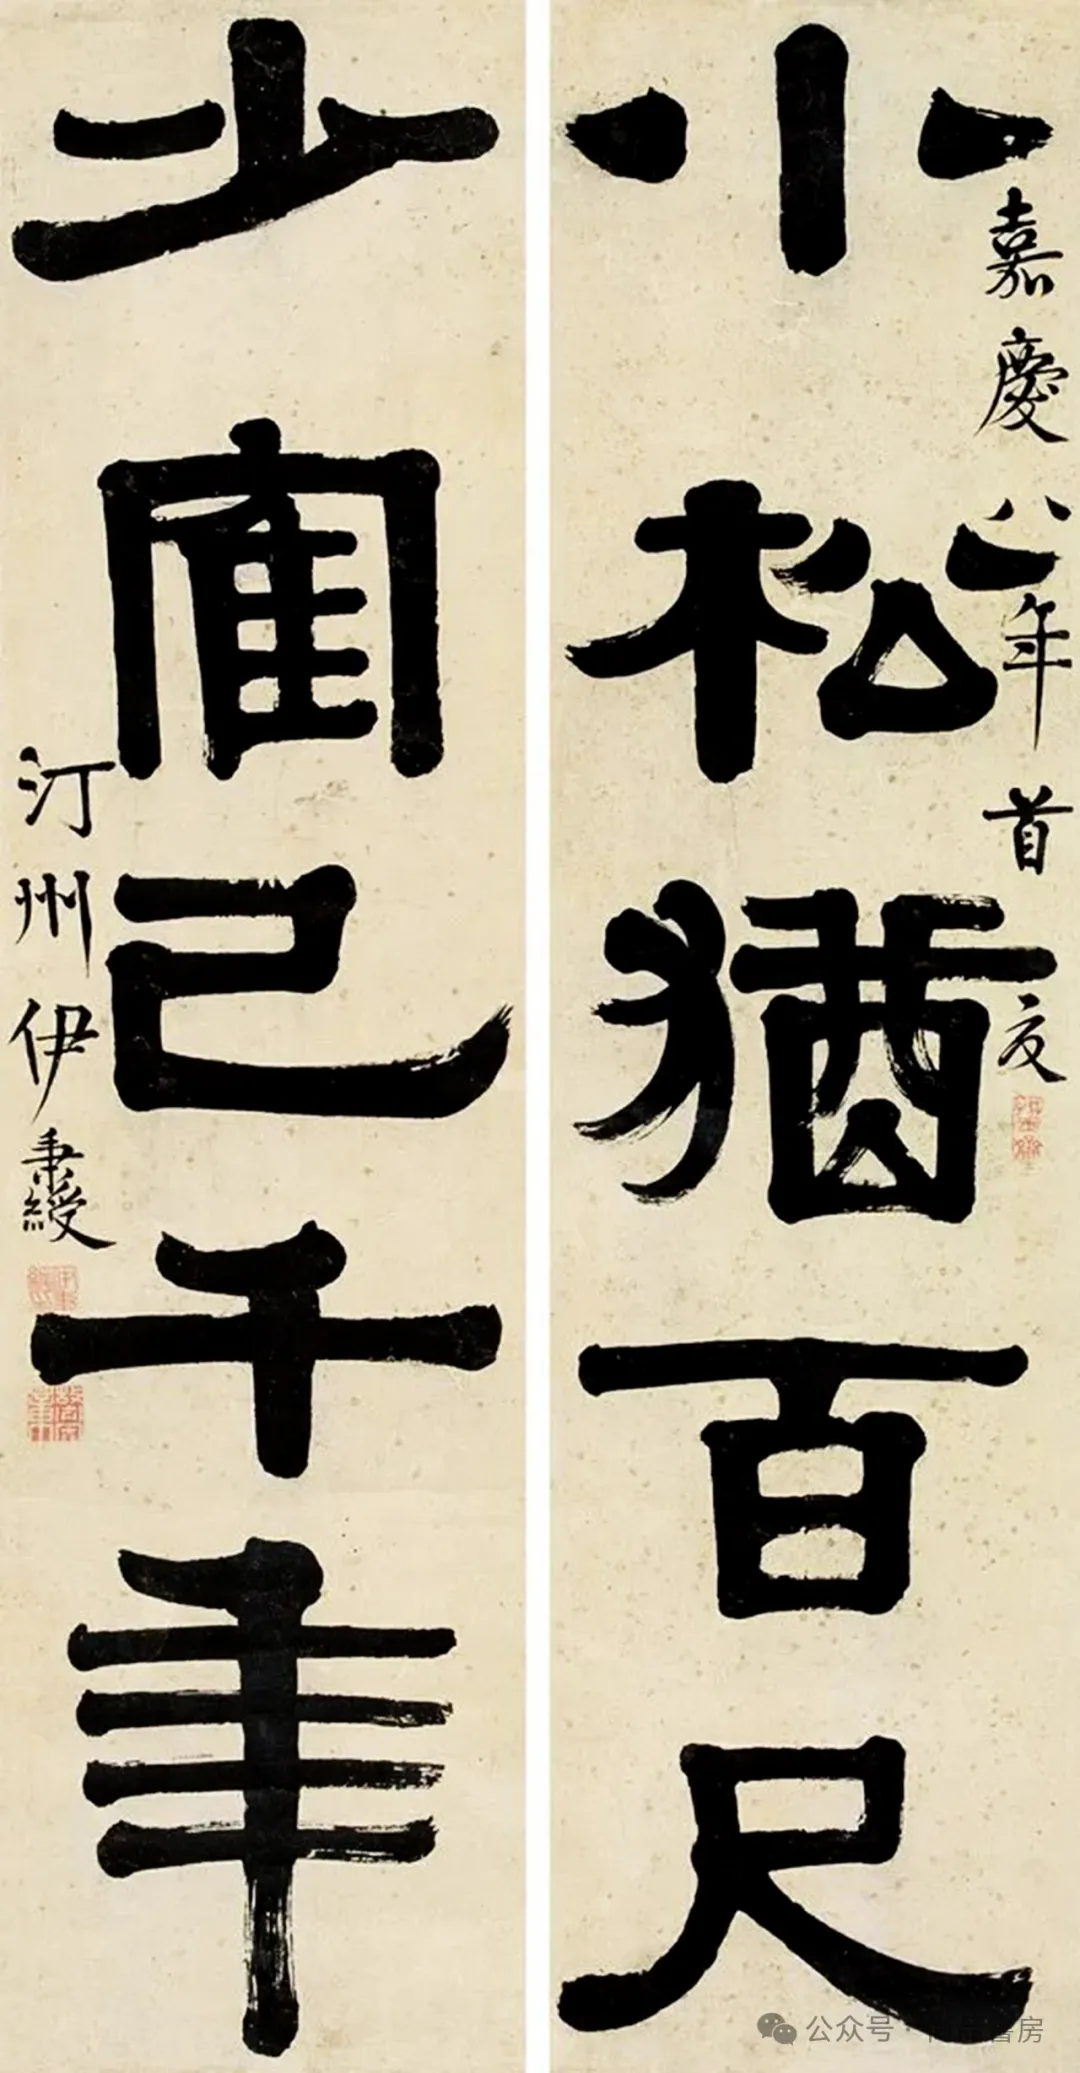 小松猶百尺
嘉慶八年首夏
少隺已千年
汀州伊秉綬
公众号